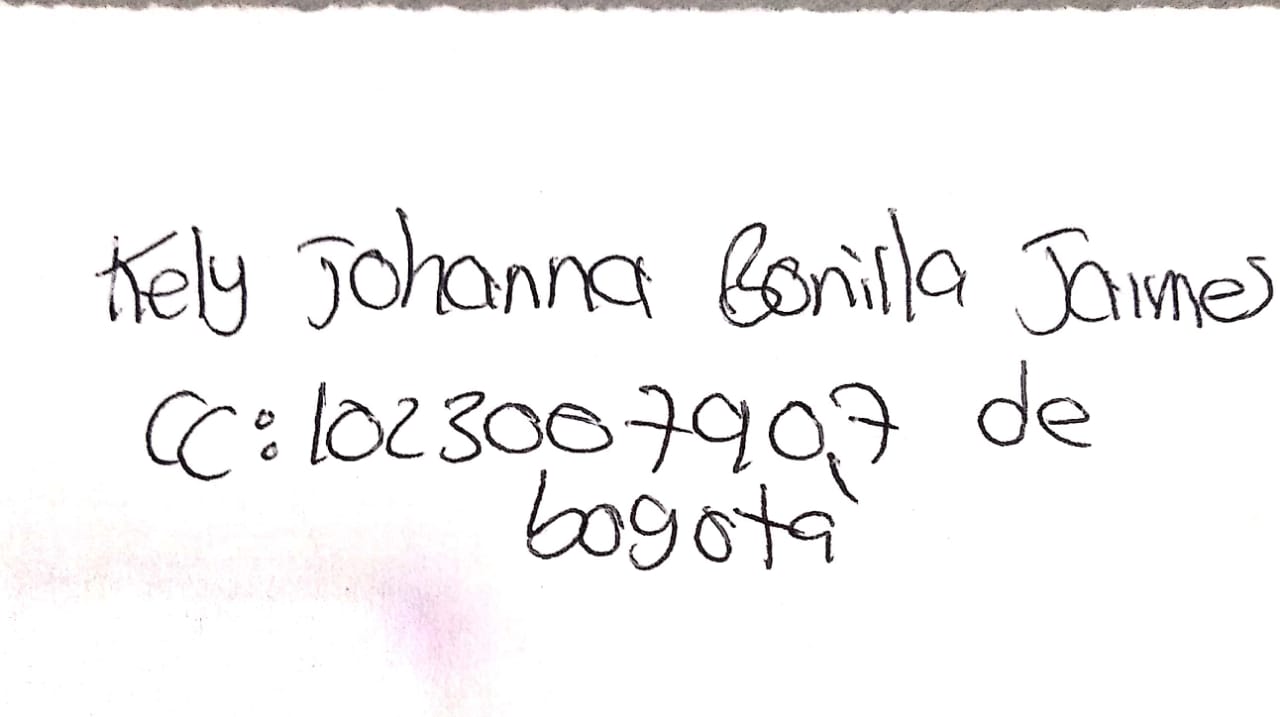 Kely Johanna Bonilla Jaimes
CC: 1023007907 de
bogotá